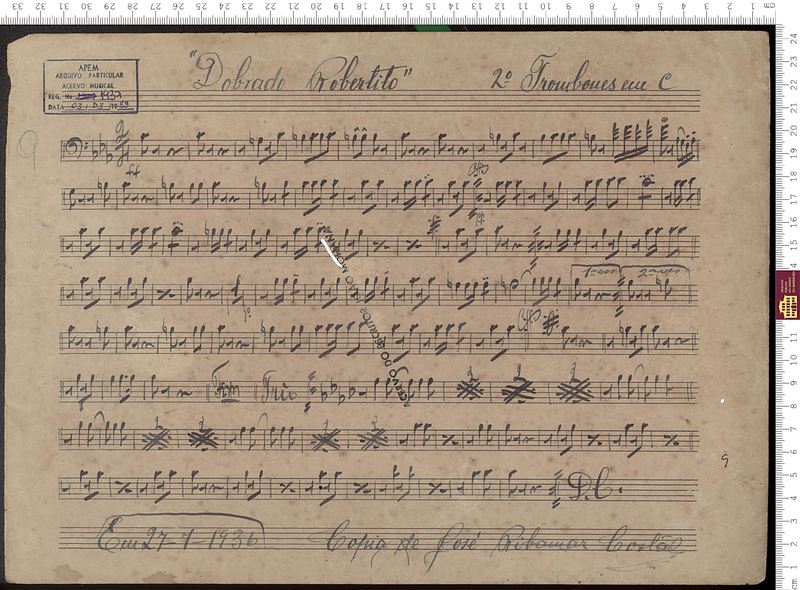 APEM
ARQUIVO PARTICULAR
ACERVO MUSICAL
REG. No 1437
DATA 03 / 03 / 1989
"Dobrado Robertito" 2º Trombones em C
ff
1ª vez 2ª vez
Fim Trio
D.C.
Em 27-7-1936 Copia de José Ribamar Costa
9